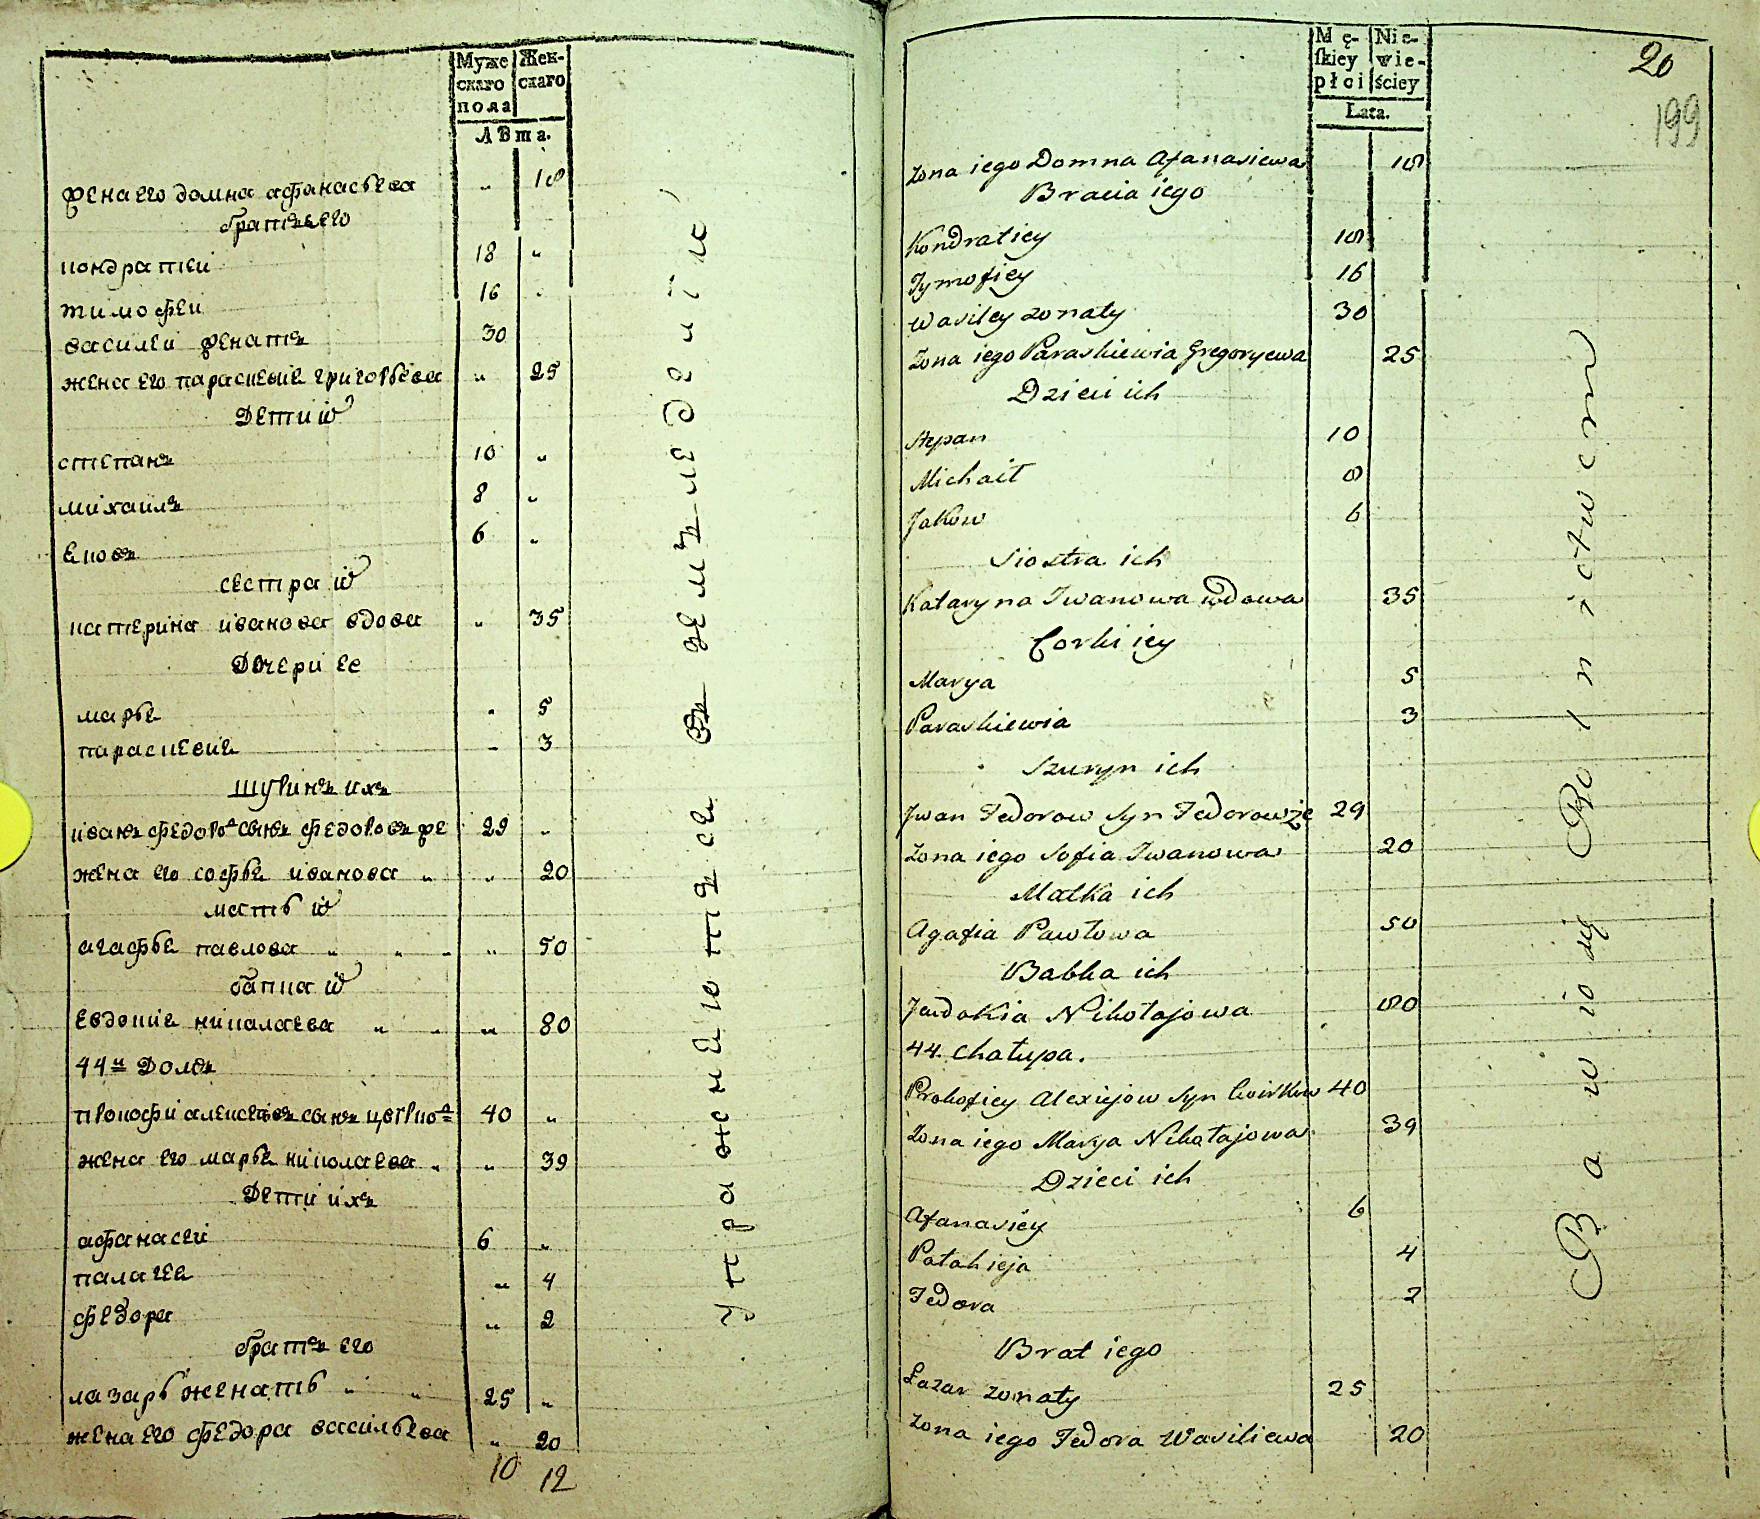 Муже
скаго
пола
Жен-
скаго
лѣта.
жена его домна афанасьева „ 18
братье его
кондратей 18 „
тимофеи 16 „
василеи женатъ 30
жена его параскевие григорьева „ 25
дети и͠х
степанъ 10 „
михаилъ 8 „
ековъ 6 „
сестра и͠х
катерина иванова вдова „ 35
дочери ее
марье „ 5
параскевие „ 3
шуринъ ихъ
иванъ федоровъ сынъ федоровъ же 29 „
жена его софье иванова „ „ 20
мать и͠х
агафье павлова „ „ „ „ 50
бапка и͠х
евдокие николаева „ „ „ 80
44й домъ
прокофи алексеевъ сынъ 40 „
жена его марье николаева „ „ 39
дети ихъ
афанасеи 6 „
палагее „ 4
федора „ 2
братъ его
лазарь женатъ „ „ 25 „
жена его федора васильева „ 20
10 12
упражнѣютъся въ земъледелiи
20
199
Mę-
skiey
płci
Nie-
wie-
ściey
Lata.
Zona iego Domna Afanasiewa 18
Bracia iego
Kondratiey 18
Tymofiey 16
Wasiley zonaty 30
Zona iego Paraskiewia Gregoryewa 25
Dzieci ich
Stepan 10
Michaił 8
Jakow 6
Siostra ich
Kataryna Iwanowa wdowa 35
Corki iey
Marya 5
Paraskiewia 3
Szuryn ich
Iwan Fedorow Syn Fedorowże 29
Zona iego Sofia Iwanowa 20
Matka ich
Agafia Pawłowa 50
Babka ich
Jewdokia Nikołajowa 80
44. chałupa.
Prokofiey Alexiejow Syn 40
Zona iego Marya Nikołajowa 39
Dzieci ich
Afanasiey 6
Pałahieja 4
Fedora 2
Brat iego
Łazar zonaty 25
Zona iego Fedora Wasiliewa 20
Bawio się Rolnictwem